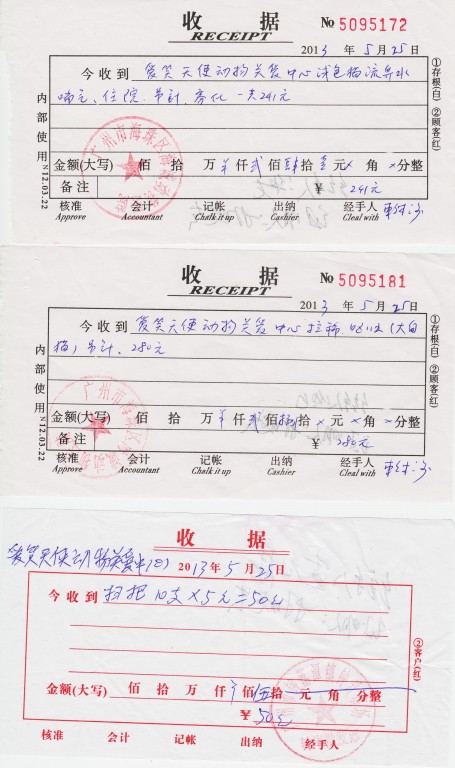 收 据 No 5095172
RECEIPT
2013 年 5 月 25 日
今收到 爱笑天使动物关爱中心 浅色猫流鼻水
喘气、住院、吊针、雾化 一共241元
内部使用
N12.03.22
①存根(白) ②顾客(红)
金额(大写) 佰 拾 万 仟 贰 佰 肆 拾 壹 元 × 角 × 分整
备注 ¥ 241元
核准 会计 记帐 出纳 经手人
Approve Accountant Chalk it up Cashier Cleal with
收 据 No 5095181
RECEIPT
2013 年 5 月 25 日
今收到 爱笑天使动物关爱中心 拉稀 呕吐 (大白
猫) 吊针、280元
内部使用
N12.03.22
①存根(白) ②顾客(红)
金额(大写) 佰 拾 万 仟 贰 佰 捌 拾 × 元 × 角 × 分整
备注 ¥ 280元
核准 会计 记帐 出纳 经手人
Approve Accountant Chalk it up Cashier Cleal with
收 据
爱笑天使动物关爱中心 2013年 5 月 25 日
今收到 扫把 10支 × 5元 = 50元
②客户(红)
金额(大写) 佰 拾 万 仟 佰 伍 拾 元 角 分整
¥ 50元
核准 会计 记帐 出纳 经手人
广州市海珠区